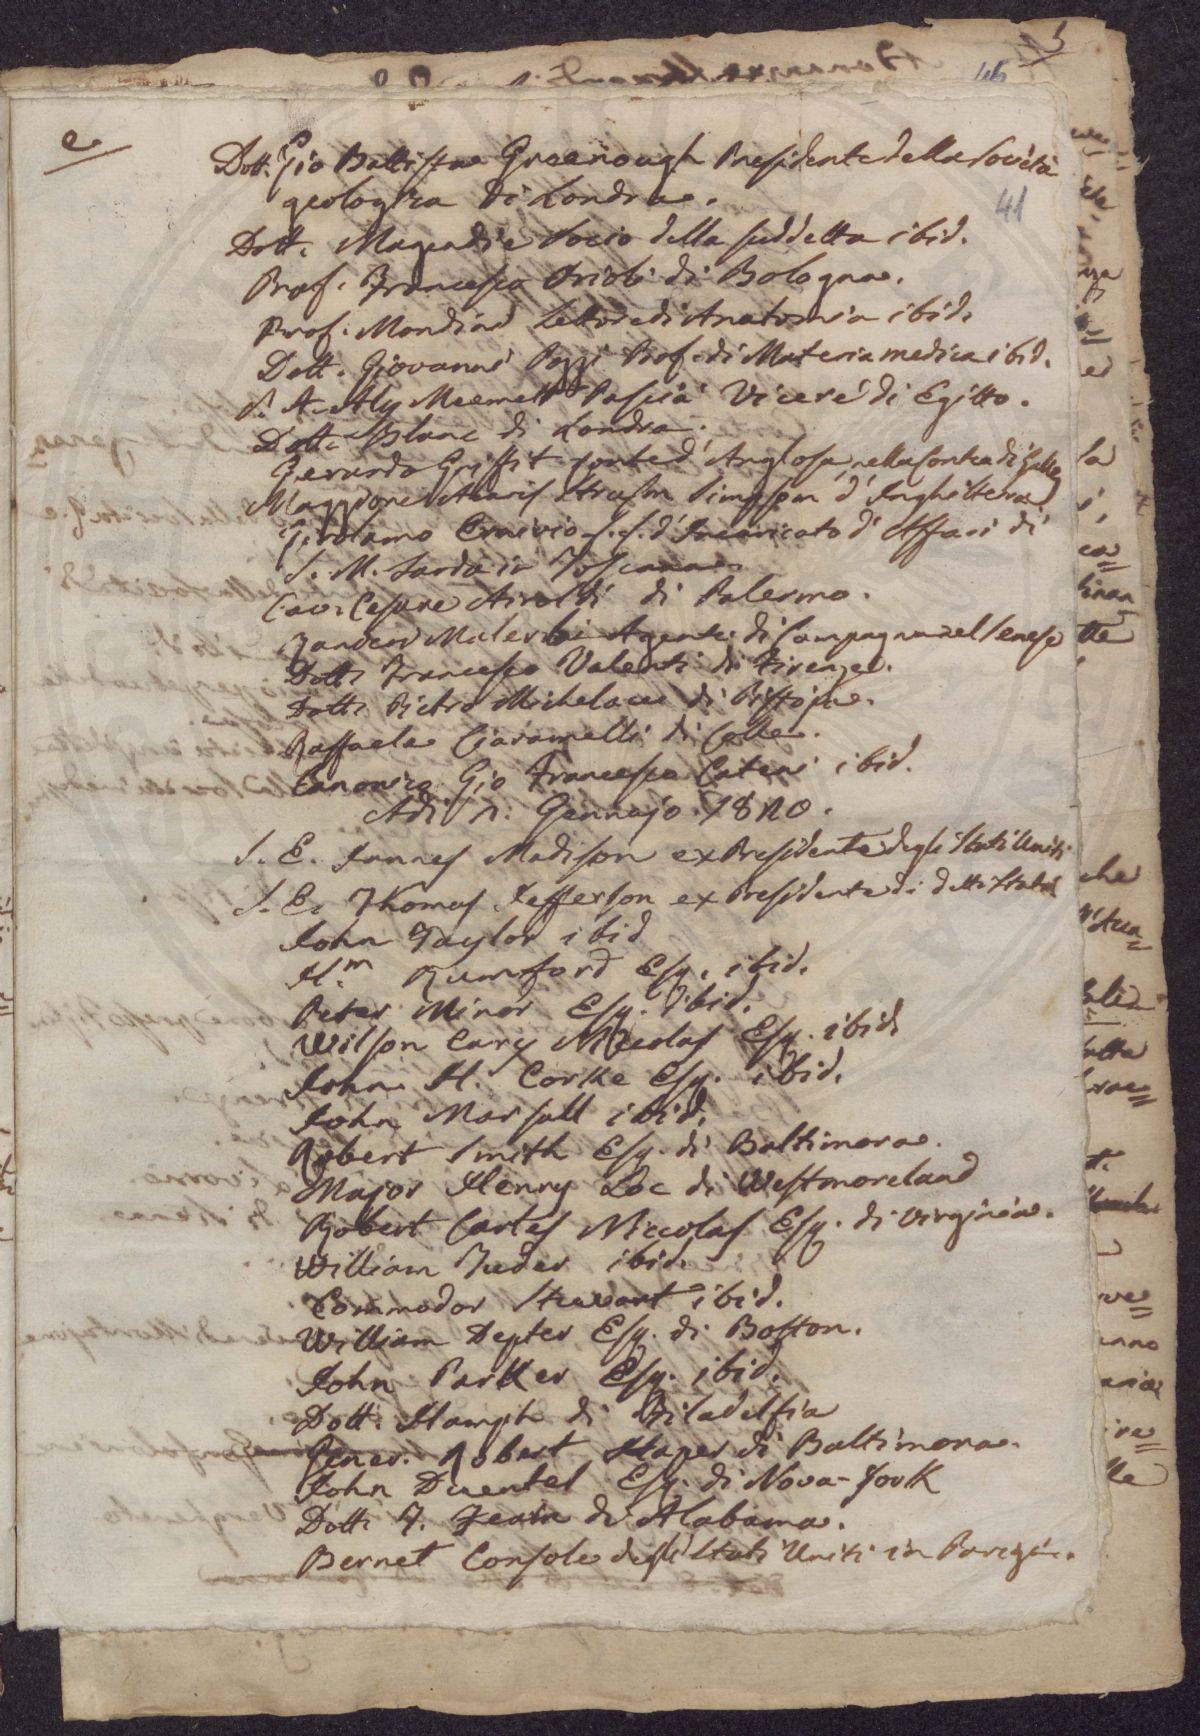 e
46
41
Dott. Gio Battista Greenough Presidente della Società
geologica di Londra.
Dott. Magendie Socio della suddetta ibid.
Prof. Francesco Orioli di Bologna.
Prof. Mondini Lettore di Anatomia ibid.
Dott. Giovanni Pozzi Prof. di Materia medica ibid.
S. A. Aly Meemett Pascià Viceré di Egitto.
Dott. Blanc di Londra.
Gerardo Griffit d' nella Contea di
d' Inghilterra
Girolamo S. S. d' Incaricato d' Affari di
S. M. Sarda in Toscana
Cav. Cesare Airoldi di Palermo.
Agente di Campagna nel Senese
Dott. Francesco Valenti di Firenze.
Dott. Pietro Michelacci di Pistoja.
Raffaele Ciaramelli di Colle.
Canonico Gio Francesco Cateni ibid.
Adi Gennajo 1820.
S. E. James Madison exPresidente degli Stati Uniti
S. E. Thomas Jefferson exPresidente di detti Stati
John Taylor ibid
H.m Rumford Esq. ibid.
Peter Minor Esq. ibid.
Wilson Cary Niccolas Esq. ibid
John H. Corke Esq. ibid.
John Marsall ibid.
Robert Smith Esq. di Baltimora.
Major Henry Loc di Westmoreland
Robert Carter Niccolas Esq. di Virginia.
William ibid.
Commodor Stewart ibid.
William Depter Esq. di Boston.
John Parker Esq. ibid.
Dott. di Filadelfia
Gener. Robert di Baltimora.
John Esq. di Nova-York
Dott. di Alabama.
Bernet Console degli Stati Uniti in Parigi.